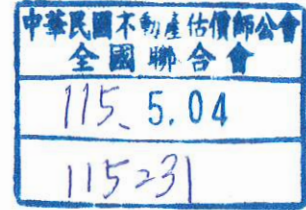 中華民國不動產估價師公會
全國聯合會
115、5.04
115231